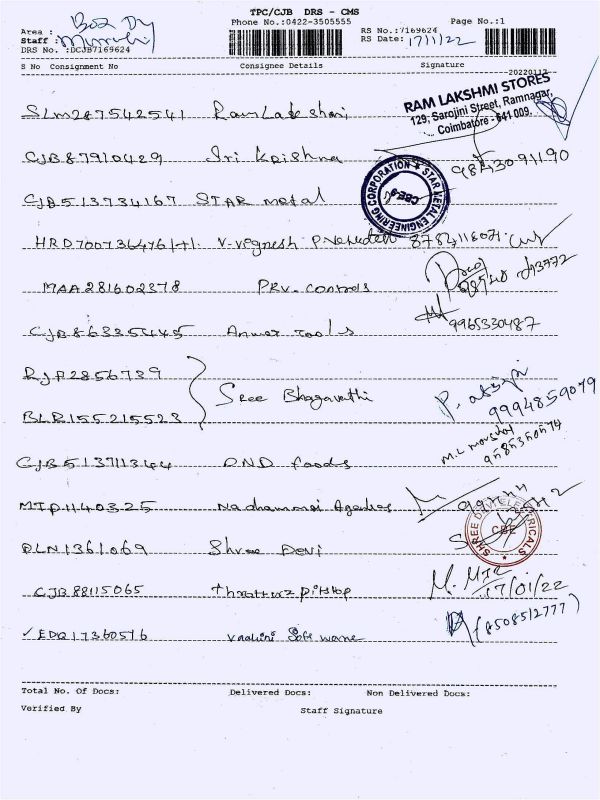 TPC/CJB DRS - CMS
Area : Box Dy
Phone No.:0422-3505555
Page No.:1
Staff : Murali
RS No.:7169624
DRS No. :DCJB7169624
RS Date: 17/1/22
S No Consignment No Consignee Details Signature
20220117
SLM287542541 Ram Lakshmi
RAM LAKSHMI STORES
129, Sarojini Street, Ramnagar,
Coimbatore - 641 009.
CJB87910429 Sri Krishna 9843091190
CJB513734167 STAR metal
STAR METAL ENGINEERING CORPORATION
CBE-9
HRD700736476/+1. V-vignesh
MAA281602378 PRV. Controls
CJB86335445 Anwer Tools 9965330487
RJA2856739
Sree Bhagavathi
P.
9994859079
BLR155215523
CJB513711344 DND foods
M.L
MTP1140325 Nachammai Agencies
DLN1361069 Shree Devi
SHREE DEVI ELECTRICALS
CBE
CJB88115065 pitstop
17/01/22
✓EDQ17360576 Vaahini Software (8508512777)
Total No. Of Docs: Delivered Docs: Non Delivered Docs:
Verified By Staff Signature